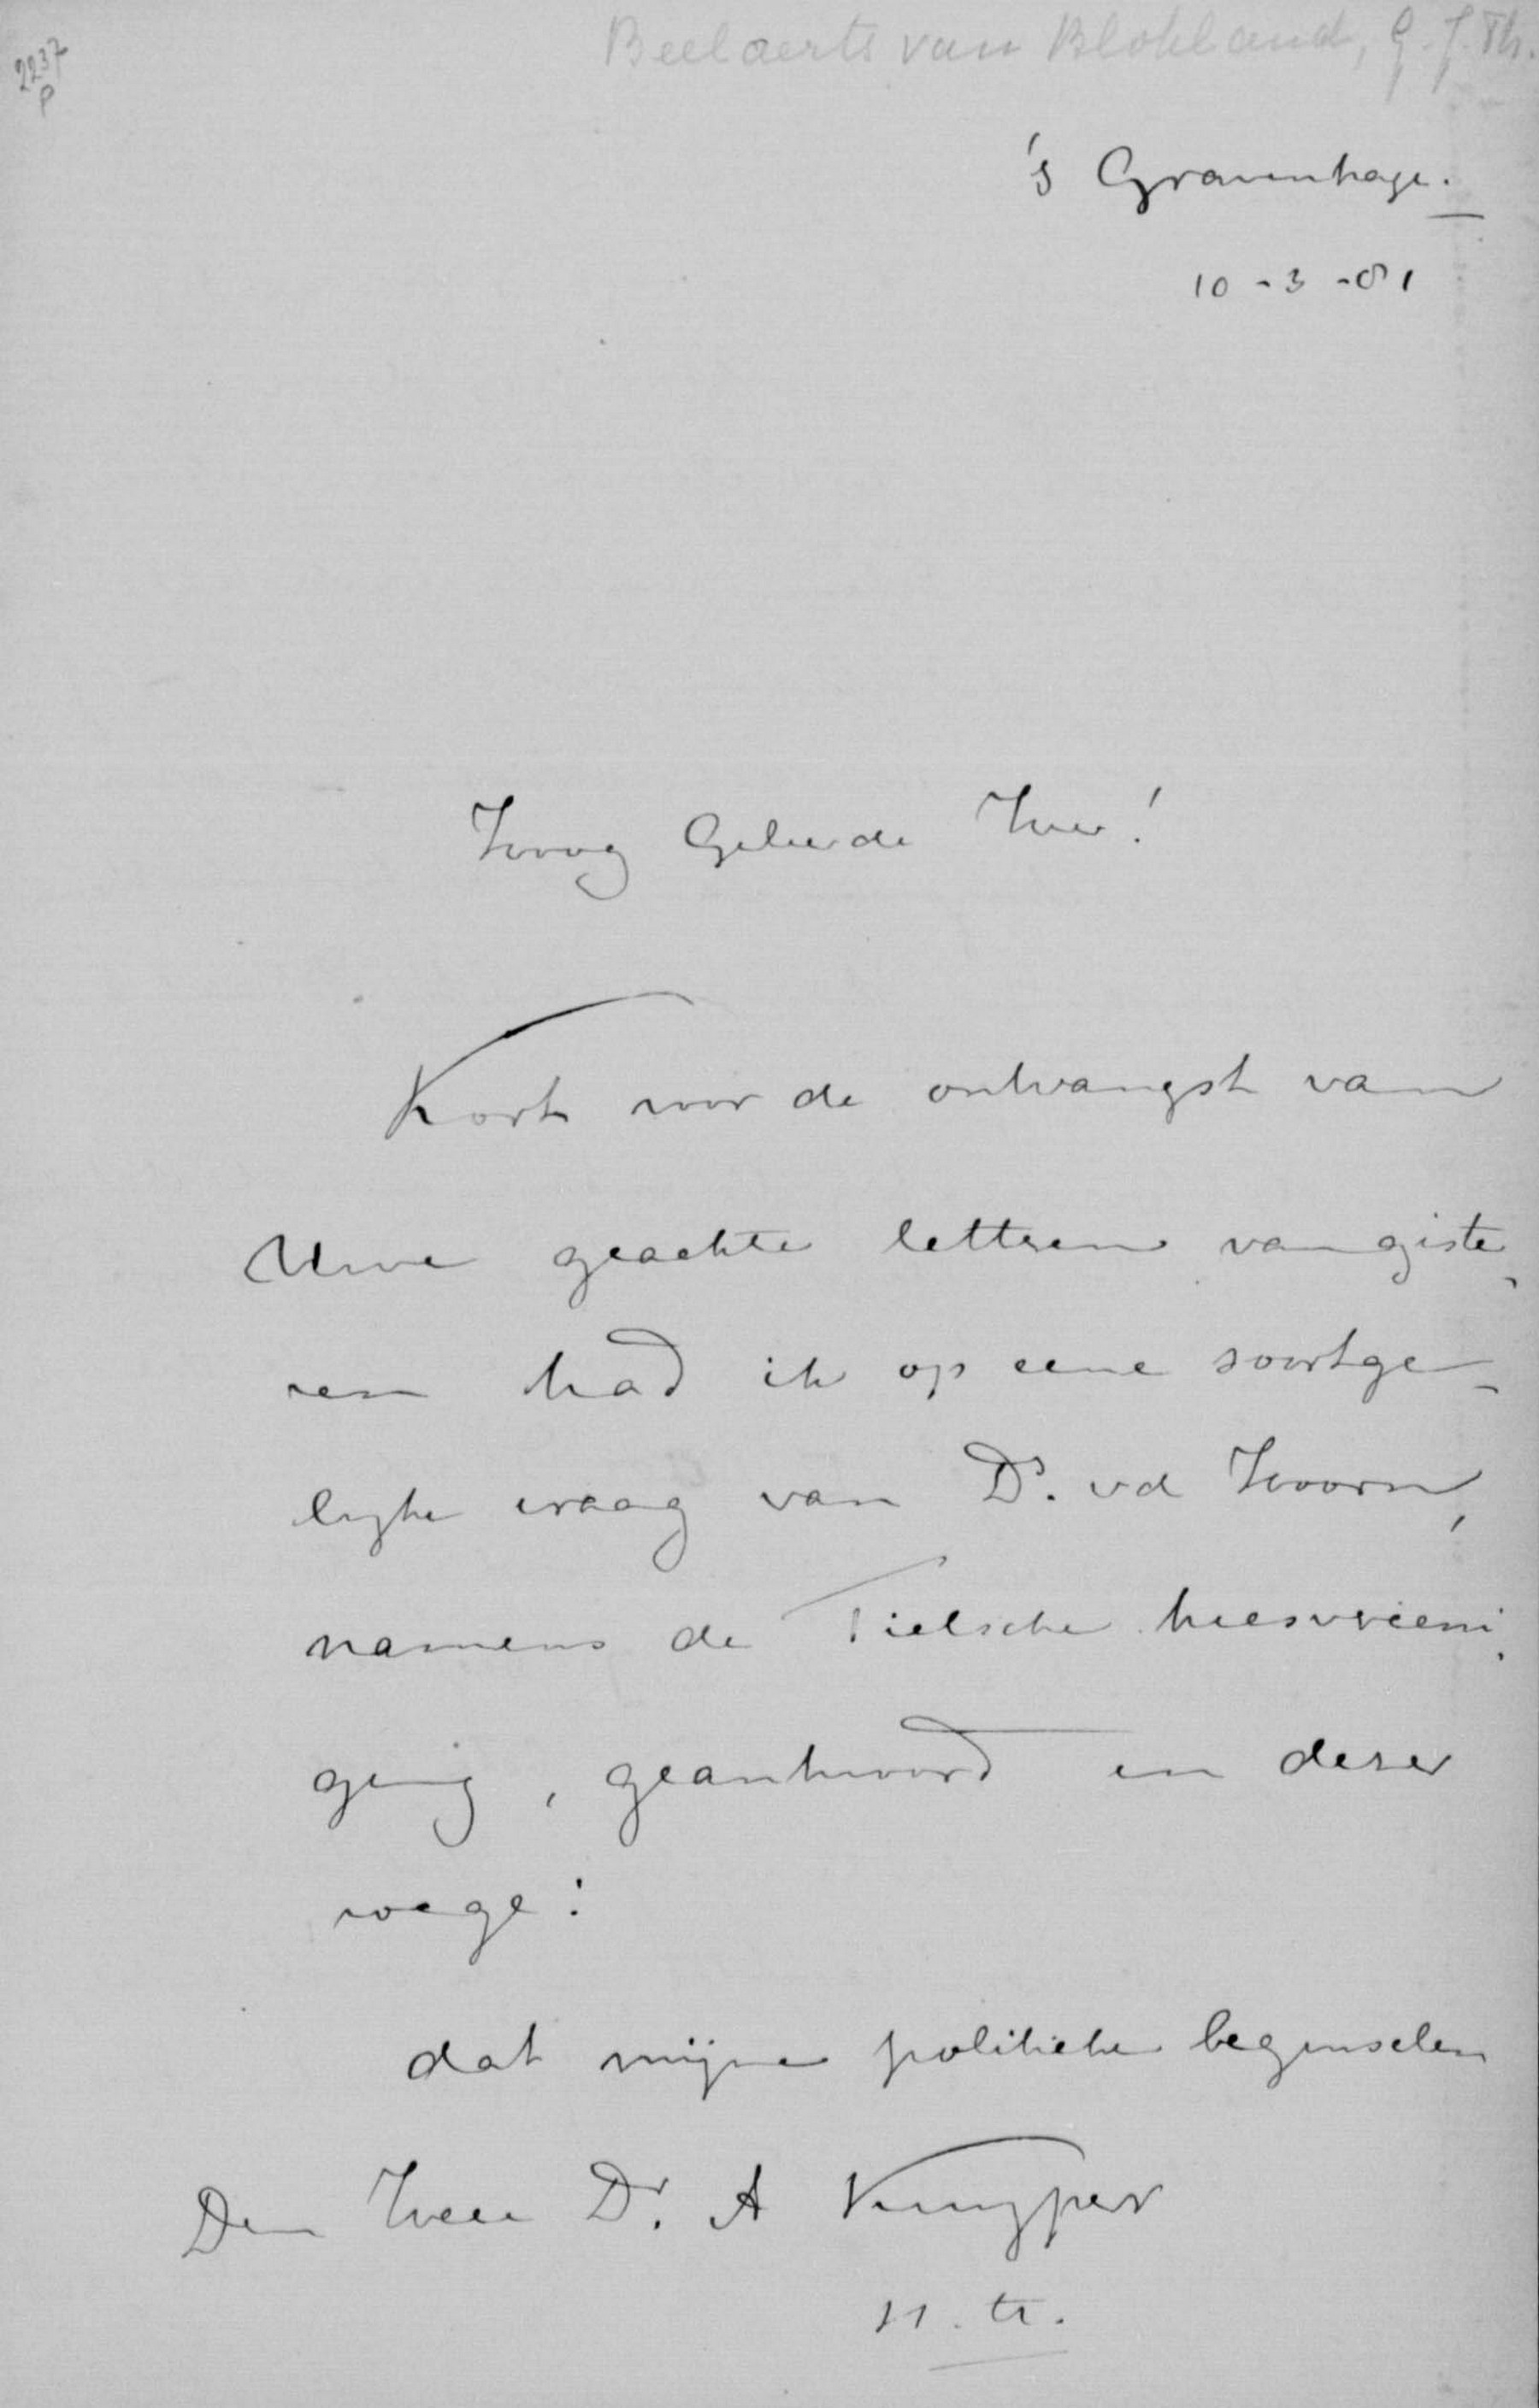 2237
P
Beelaerts van Blokland, G. J. Th.
's Gravenhage.
10 - 3 - 81
Hoog Geleerde Heer!
Kort voor de ontvangst van
Uwe geachte letteren van giste-
ren had ik op eene soortge-
lijke vraag van Ds. vd Hoorn,
namens de Tielsche kiesvereeni-
ging, geantwoord in dezer
voege:
dat mijne politieke beginselen
Den Heer Dr. A Kuyper